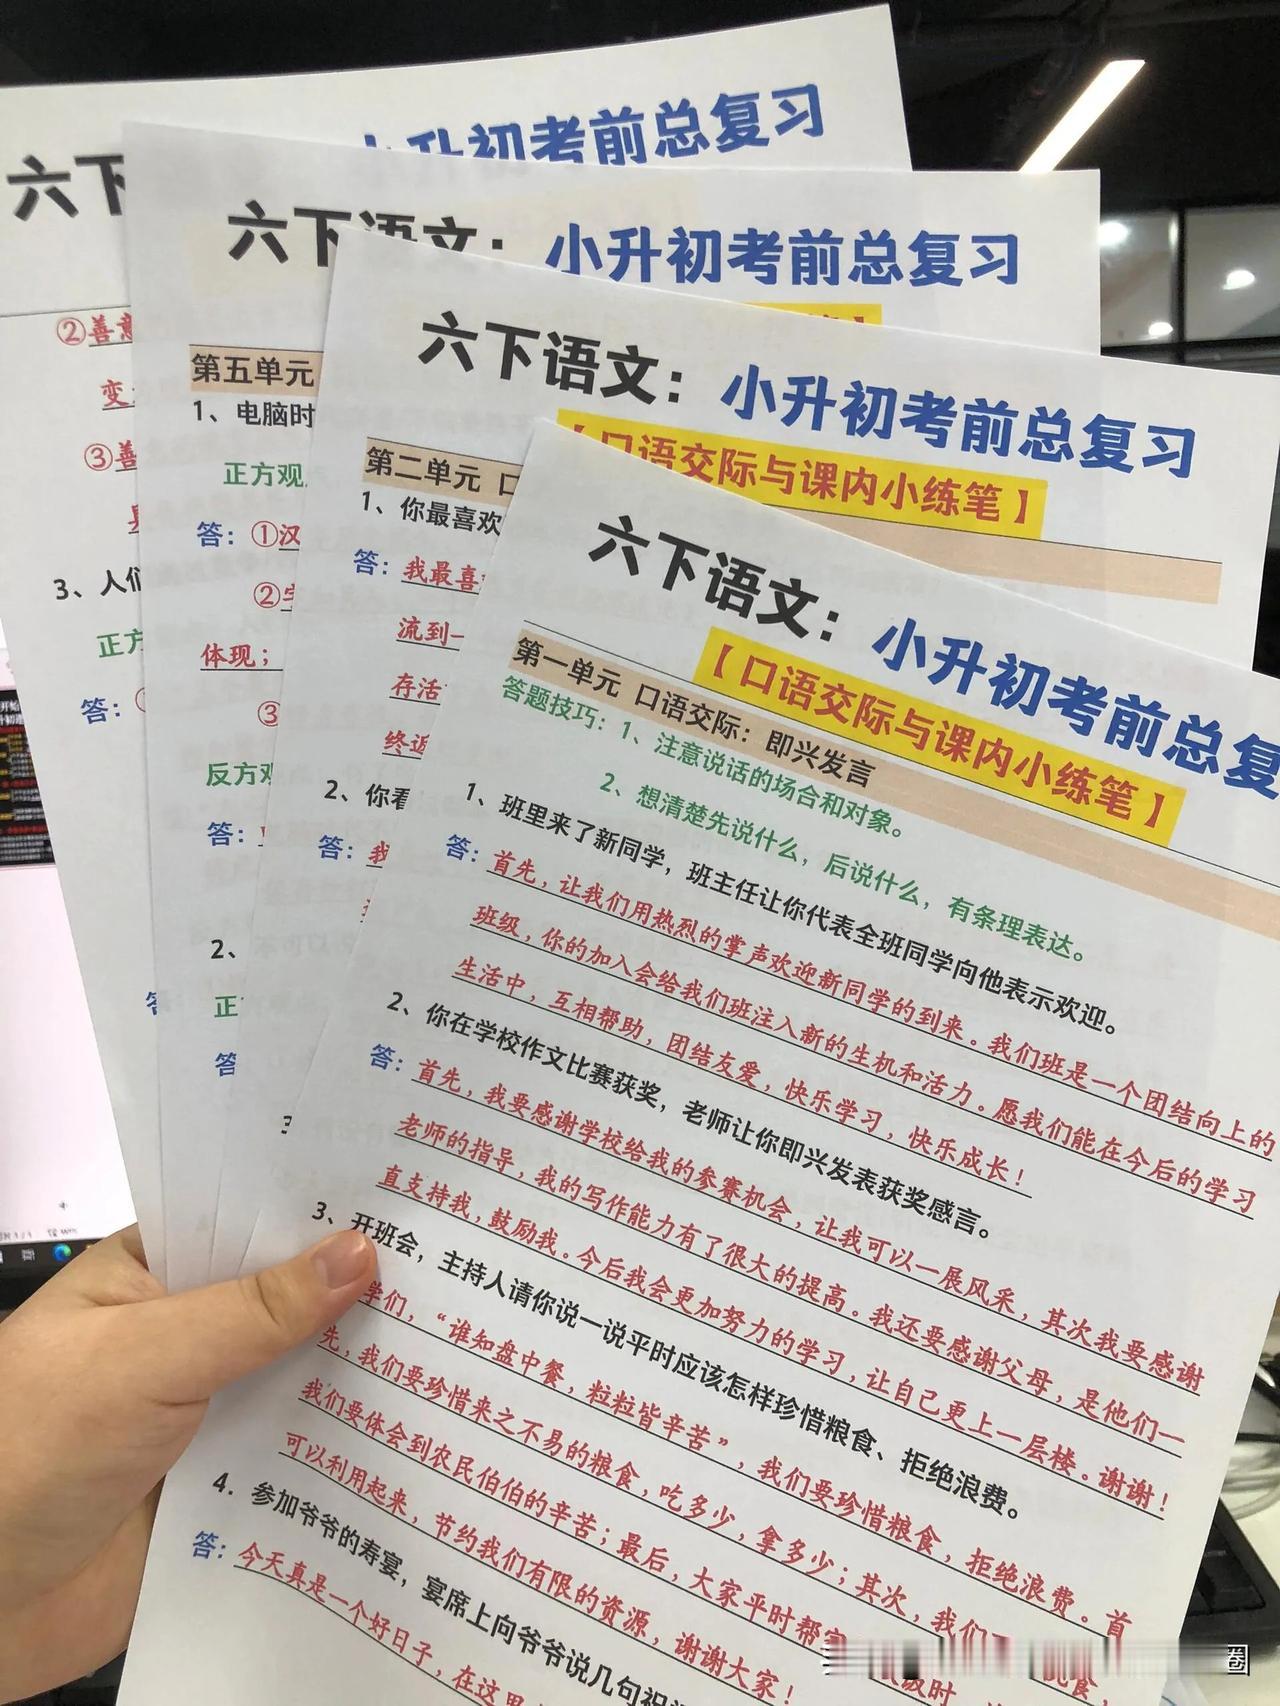 小升初考前总复习
六下
②善意
变
③善
3、人们
正方
答：
六下语文：小升初考前总复习
第五单元
1、电脑时
正方观
答：①汉
②
体现；
③
反方观
答：
2、
正
答
六下语文：小升初考前总复习
【口语交际与课内小练笔】
第二单元 口
1、你最喜欢
答：我最喜
流到一
存活
终近
2、你看
答：我
六下语文：小升初考前总复
【口语交际与课内小练笔】
第一单元 口语交际：即兴发言
答题技巧：1、注意说话的场合和对象。
2、想清楚先说什么，后说什么，有条理表达。
1、班里来了新同学，班主任让你代表全班同学向他表示欢迎。
答：首先，让我们用热烈的掌声欢迎新同学的到来。我们班是一个团结向上的
班级，你的加入会给我们班注入新的生机和活力。愿我们能在今后的学习
生活中，互相帮助，团结友爱，快乐学习，快乐成长！
2、你在学校作文比赛获奖，老师让你即兴发表获奖感言。
答：首先，我要感谢学校给我的参赛机会，让我可以一展风采，其次我要感谢
老师的指导，我的写作能力有了很大的提高。我还要感谢父母，是他们一
直支持我，鼓励我。今后我会更加努力的学习，让自己更上一层楼。谢谢！
3、开班会，主持人请你说一说平时应该怎样珍惜粮食、拒绝浪费。
学们，“谁知盘中餐，粒粒皆辛苦”，我们要珍惜粮食，拒绝浪费。首
先，我们要珍惜来之不易的粮食，吃多少，拿多少；其次，我们
我们要体会到农民伯伯的辛苦；最后，大家平时帮
可以利用起来，节约我们有限的资源，谢谢大家！
4．参加爷爷的寿宴，宴席上向爷爷说几句祝
答：今天真是一个好日子，在这里
圈